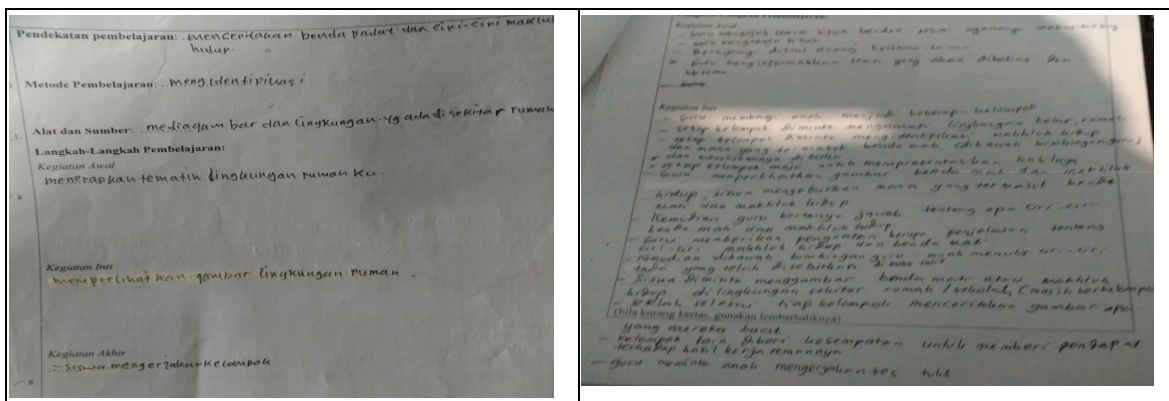 Pendekatan pembelajaran: menceritakan benda padat dan ciri-ciri makhluk
hidup.
Metode Pembelajaran: mengidentifikasi
Alat dan Sumber: media gambar dan lingkungan yg ada di sekitar rumah
Langkah-Langkah Pembelajaran:
Kegiatan Awal
menerapkan tematik lingkungan rumah ku.
Kegiatan Inti
memperlihatkan gambar lingkungan rumah.
Kegiatan Akhir
- siswa mengerjakan kelompok
Kegiatan Awal
- Guru mengajak siswa berdoa sesuai agamanya masing-masing
- Guru mengabsen siswa
- Bernyanyi disini senang bersama-sama
- Guru menginformasikan tema yang akan dibahas dan
Kegiatan Inti
- Guru membagi anak menjadi beberapa kelompok
- setiap kelompok diminta mengamati lingkungan kelas, rumah
- setiap kelompok diminta mengidentifikasi makhluk hidup
dan mana yang termasuk benda mati (dibawah bimbingan guru)
dan menuliskannya di buku
- setiap kelompok maju untuk mempresentasikan hasilnya
- Guru memperlihatkan gambar benda mati dan makhluk
hidup, siswa menyebutkan mana yang termasuk benda
mati dan makhluk hidup
- Kemudian guru bertanya jawab tentang apa ciri-ciri
benda mati dan makhluk hidup
- Guru memberikan penguatan berupa penjelasan tentang
ciri-ciri makhluk hidup dan benda mati
- Kemudian dibawah bimbingan guru anak menulis ciri-ciri
tadi yang telah disebutkan di buku tulis
- Siswa diminta menggambar benda mati atau makhluk
hidup di lingkungan sekitar rumah / sekolah (masih berkelompok
- setelah selesai tiap kelompok menceritakan gambar apa
(bila kurang kertas, gunakan lembar baliknya)
yang mereka buat
- Kelompok lain diberi kesempatan untuk memberi pendapat
terhadap hasil kerja temannya
- guru meminta anak mengerjakan tes tulis